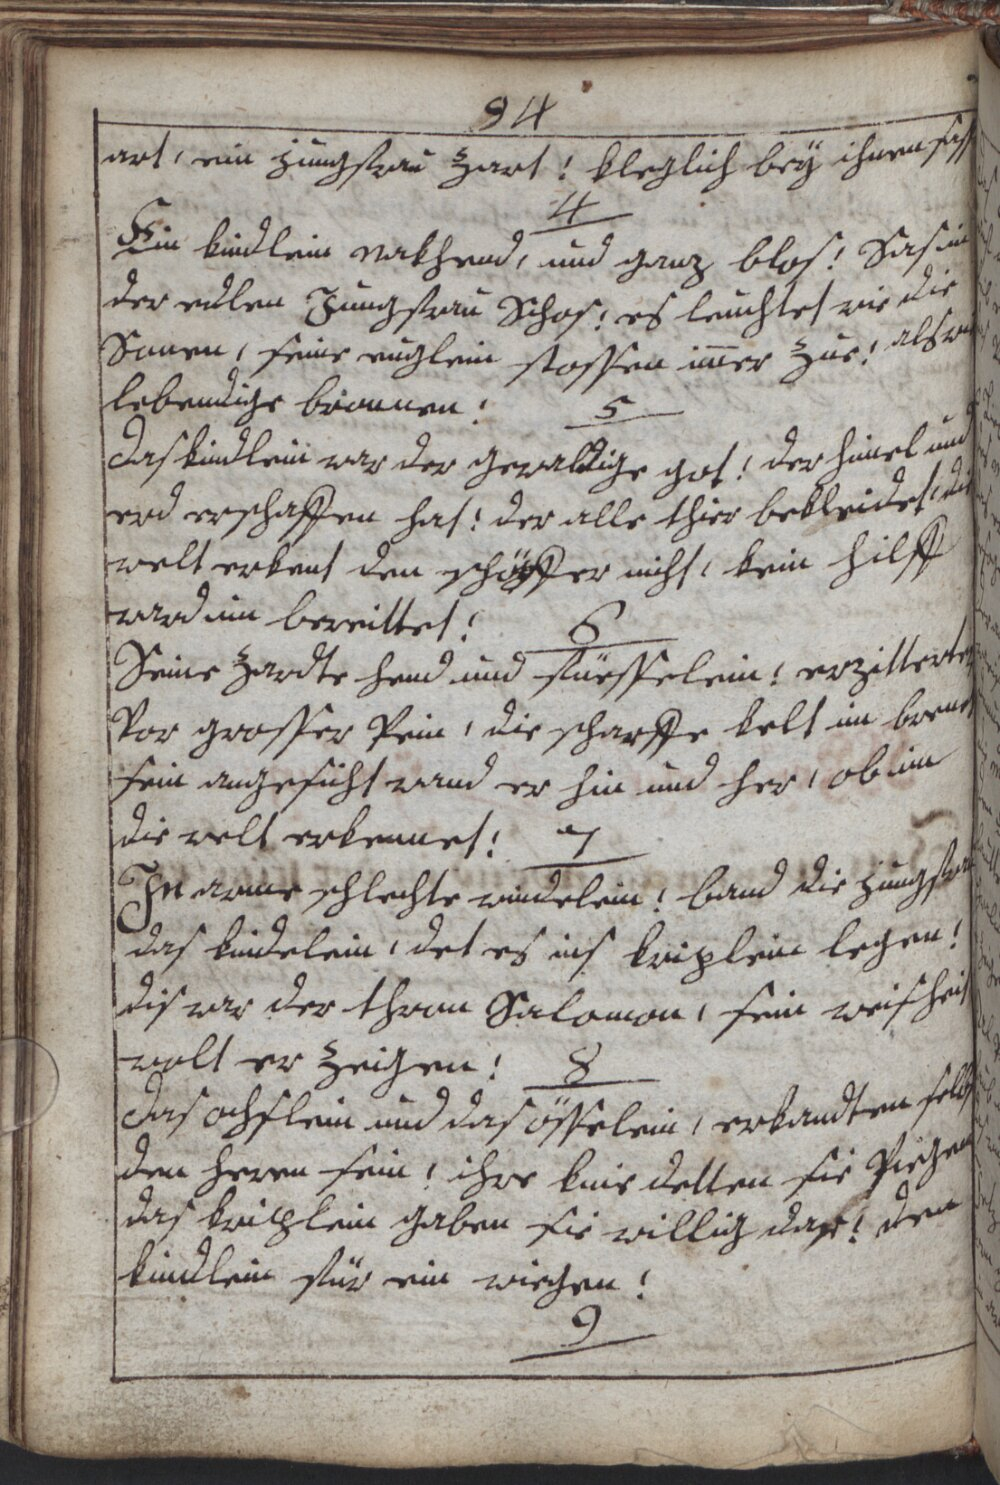 94
art, ein Jungfrau zart! kleglich bey ihnen sass
4
Ein kindlein nakhend, und ganz blos! Sas in
der edlen Jungfrau Schos: es leuchtet wie die
Sonen, seine euglein flossen immer zue! als w
lebendige bronnen!
5
das kindlein war der gewaldige got! der himel und
erd erschaffen hat! der alle thier bekleidet, di
welt erkent den schöpffer nicht, kein hilff
ward im bereittet!
6
Seine zardte hend und füesselein! erzitterten
Vor grosser Pein, die scharffe kelt im brenet
sein angesicht wand er hin und her, ob im
die welt erkennet!
7
In arme schlechte windelein! band die Jungfrau
das kindelein, det es ins kriplein legen!
dis war der thron Salomon, sein weisheit
wolt er zeigen!
8
das ochslein und das össelein, erkandten selbs
den heren sein! ihre knie detten sie Piegen
das kriplein gaben sie willig dar! dem
kindlein für ein wiegen!
9